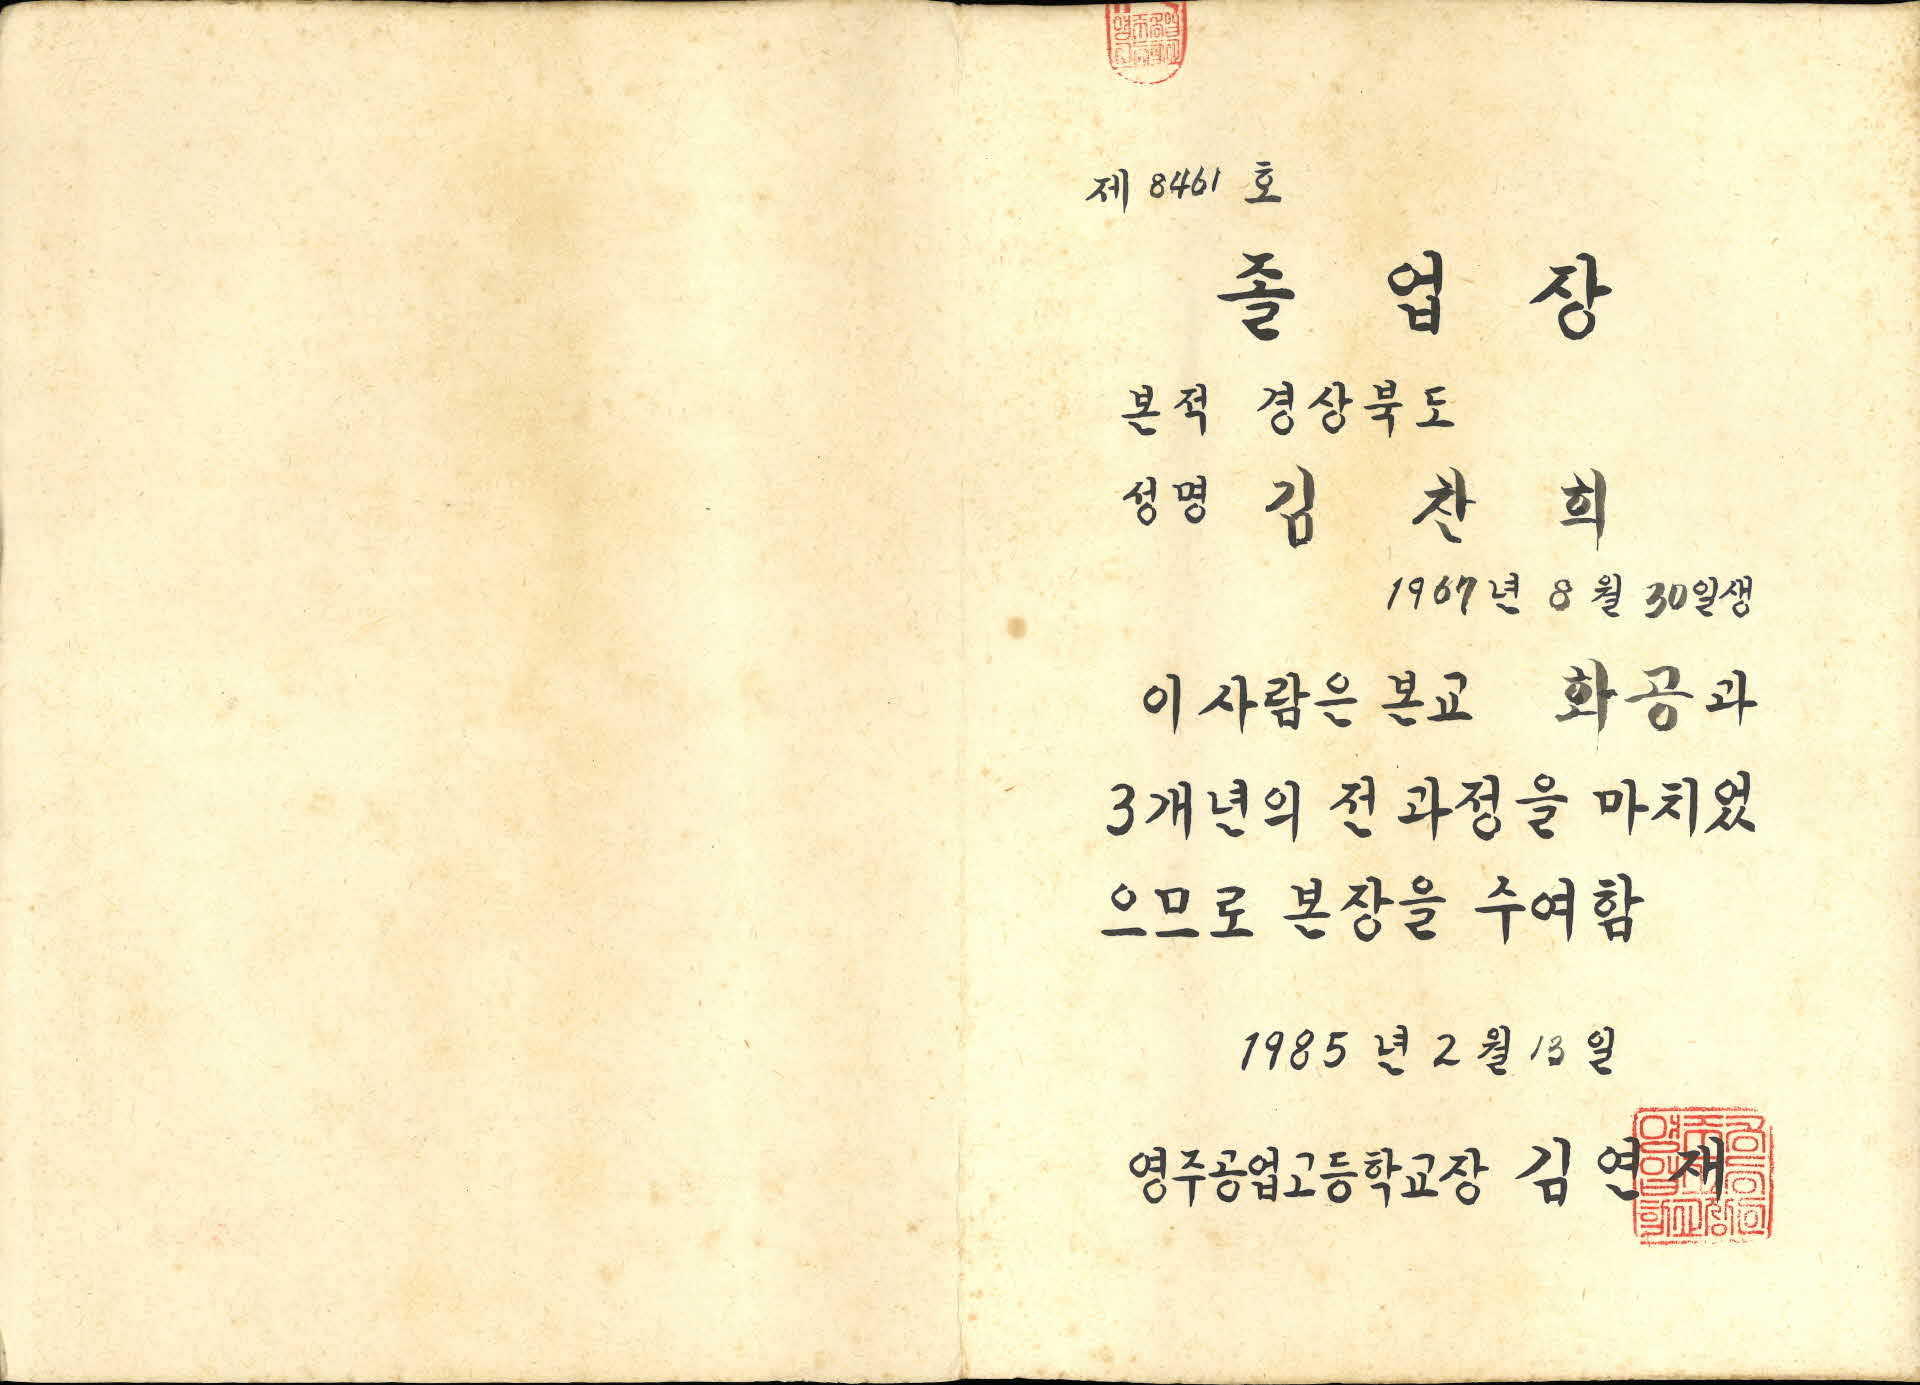 제 8461 호
졸 업 장
본적 경상북도
성명 김 찬 희
1967년 8월 30일생
이 사람은 본교 화공과
3개년의 전 과정을 마치었
으므로 본장을 수여함
1985년 2월 13일
영주공업고등학교장 김연재